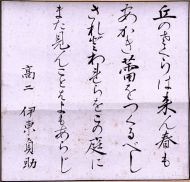 丘のさくらは来ん春も
あかき蕾をつくるべし
されどわれらをこの庭に
また見んことそよもあらじ
高二 伊東貞助